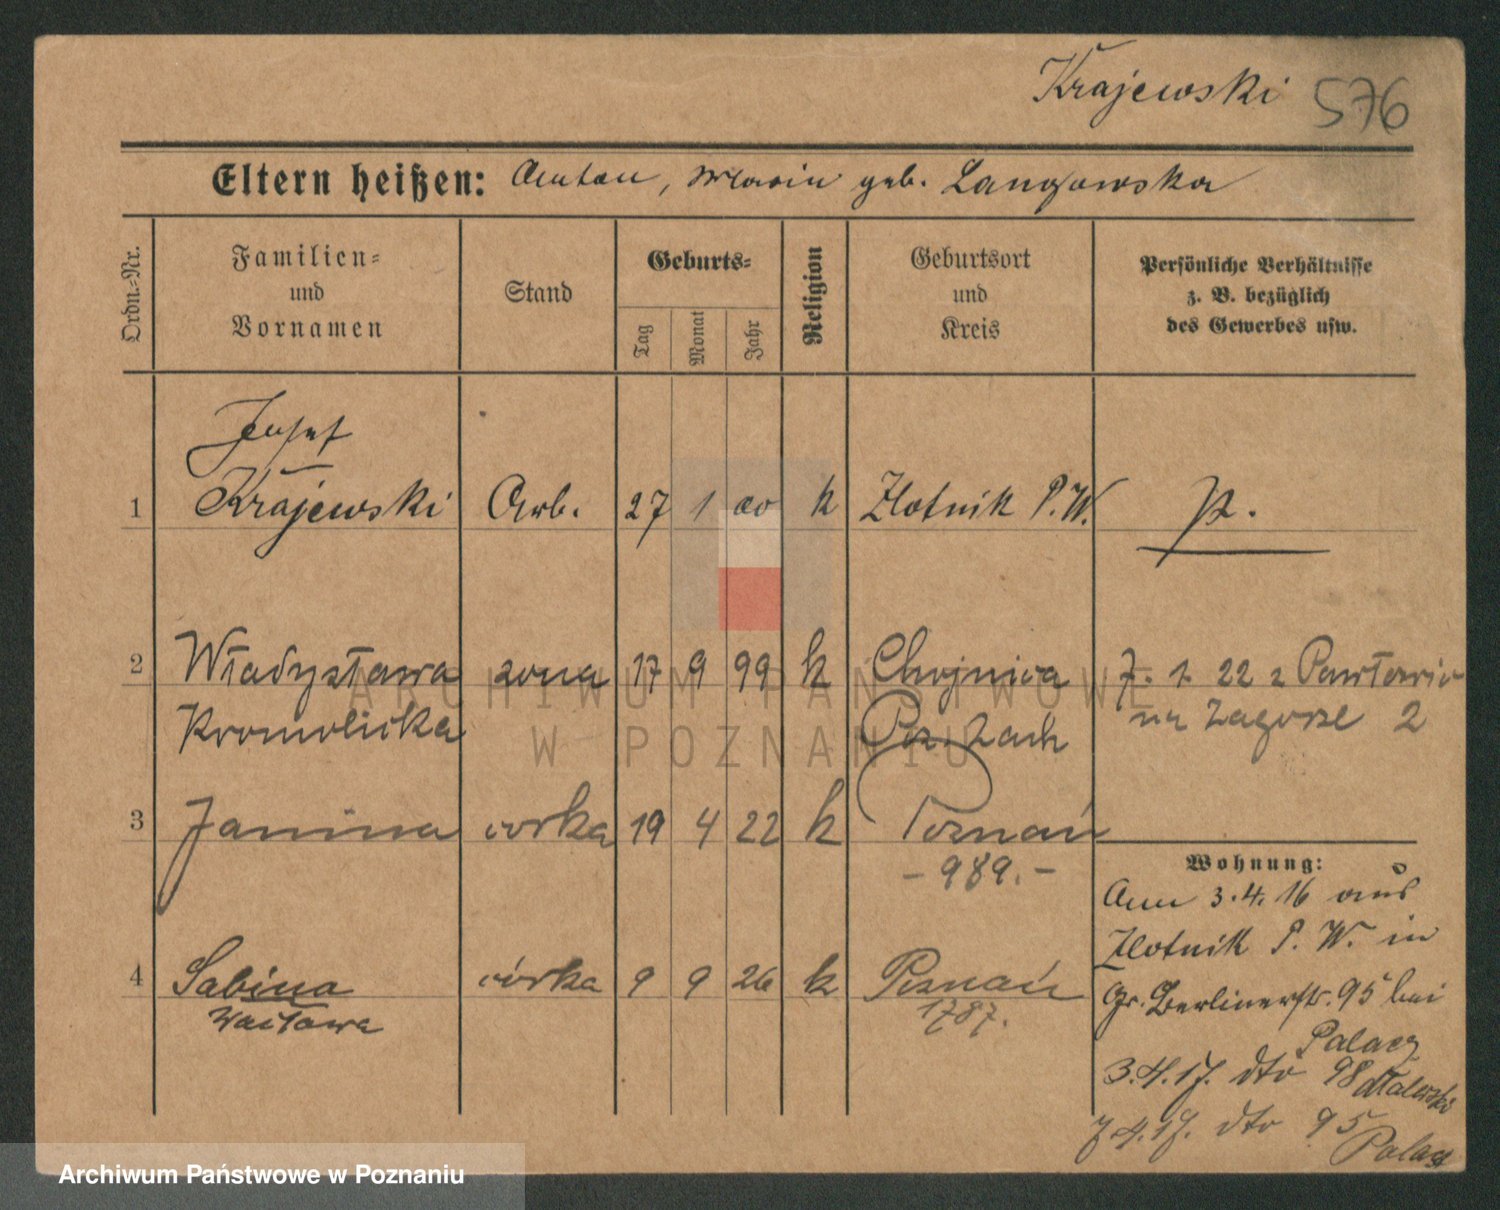 Krajewski 576
Eltern heißen: Anton, Marie geb. Langowska
Ordn.-Nr.
Familien-
und
Vornamen
Stand
Geburts-
Tag
Monat
Jahr
Religion
Geburtsort
und
Kreis
Persönliche Verhältnisse
z. B. bezüglich
des Gewerbes usw.
Josef
1 Krajewski Arb. 27 1 00 k Zlotnik P.W. P.
2 Władysława żona 17 9 99 k Chojnica 7. 1. 22 z Pawłowic
Kromolicka Poz. Zach na Zagorze 2
3 Janina córka 19 4 22 k Poznań
- 989. -
Wohnung:
Am 3.4.16 aus
Zlotnik P. W. in
4 Sabina córka 9 9 26 k Poznań
Wacława 1787.
Gr. Berlinerstr. 95 bei
Palacz
3.4.17. dto 98
7.4.17. dto 95
Palacz
ARCHIWUM PAŃSTWOWE
W POZNANIU
Archiwum Państwowe w Poznaniu